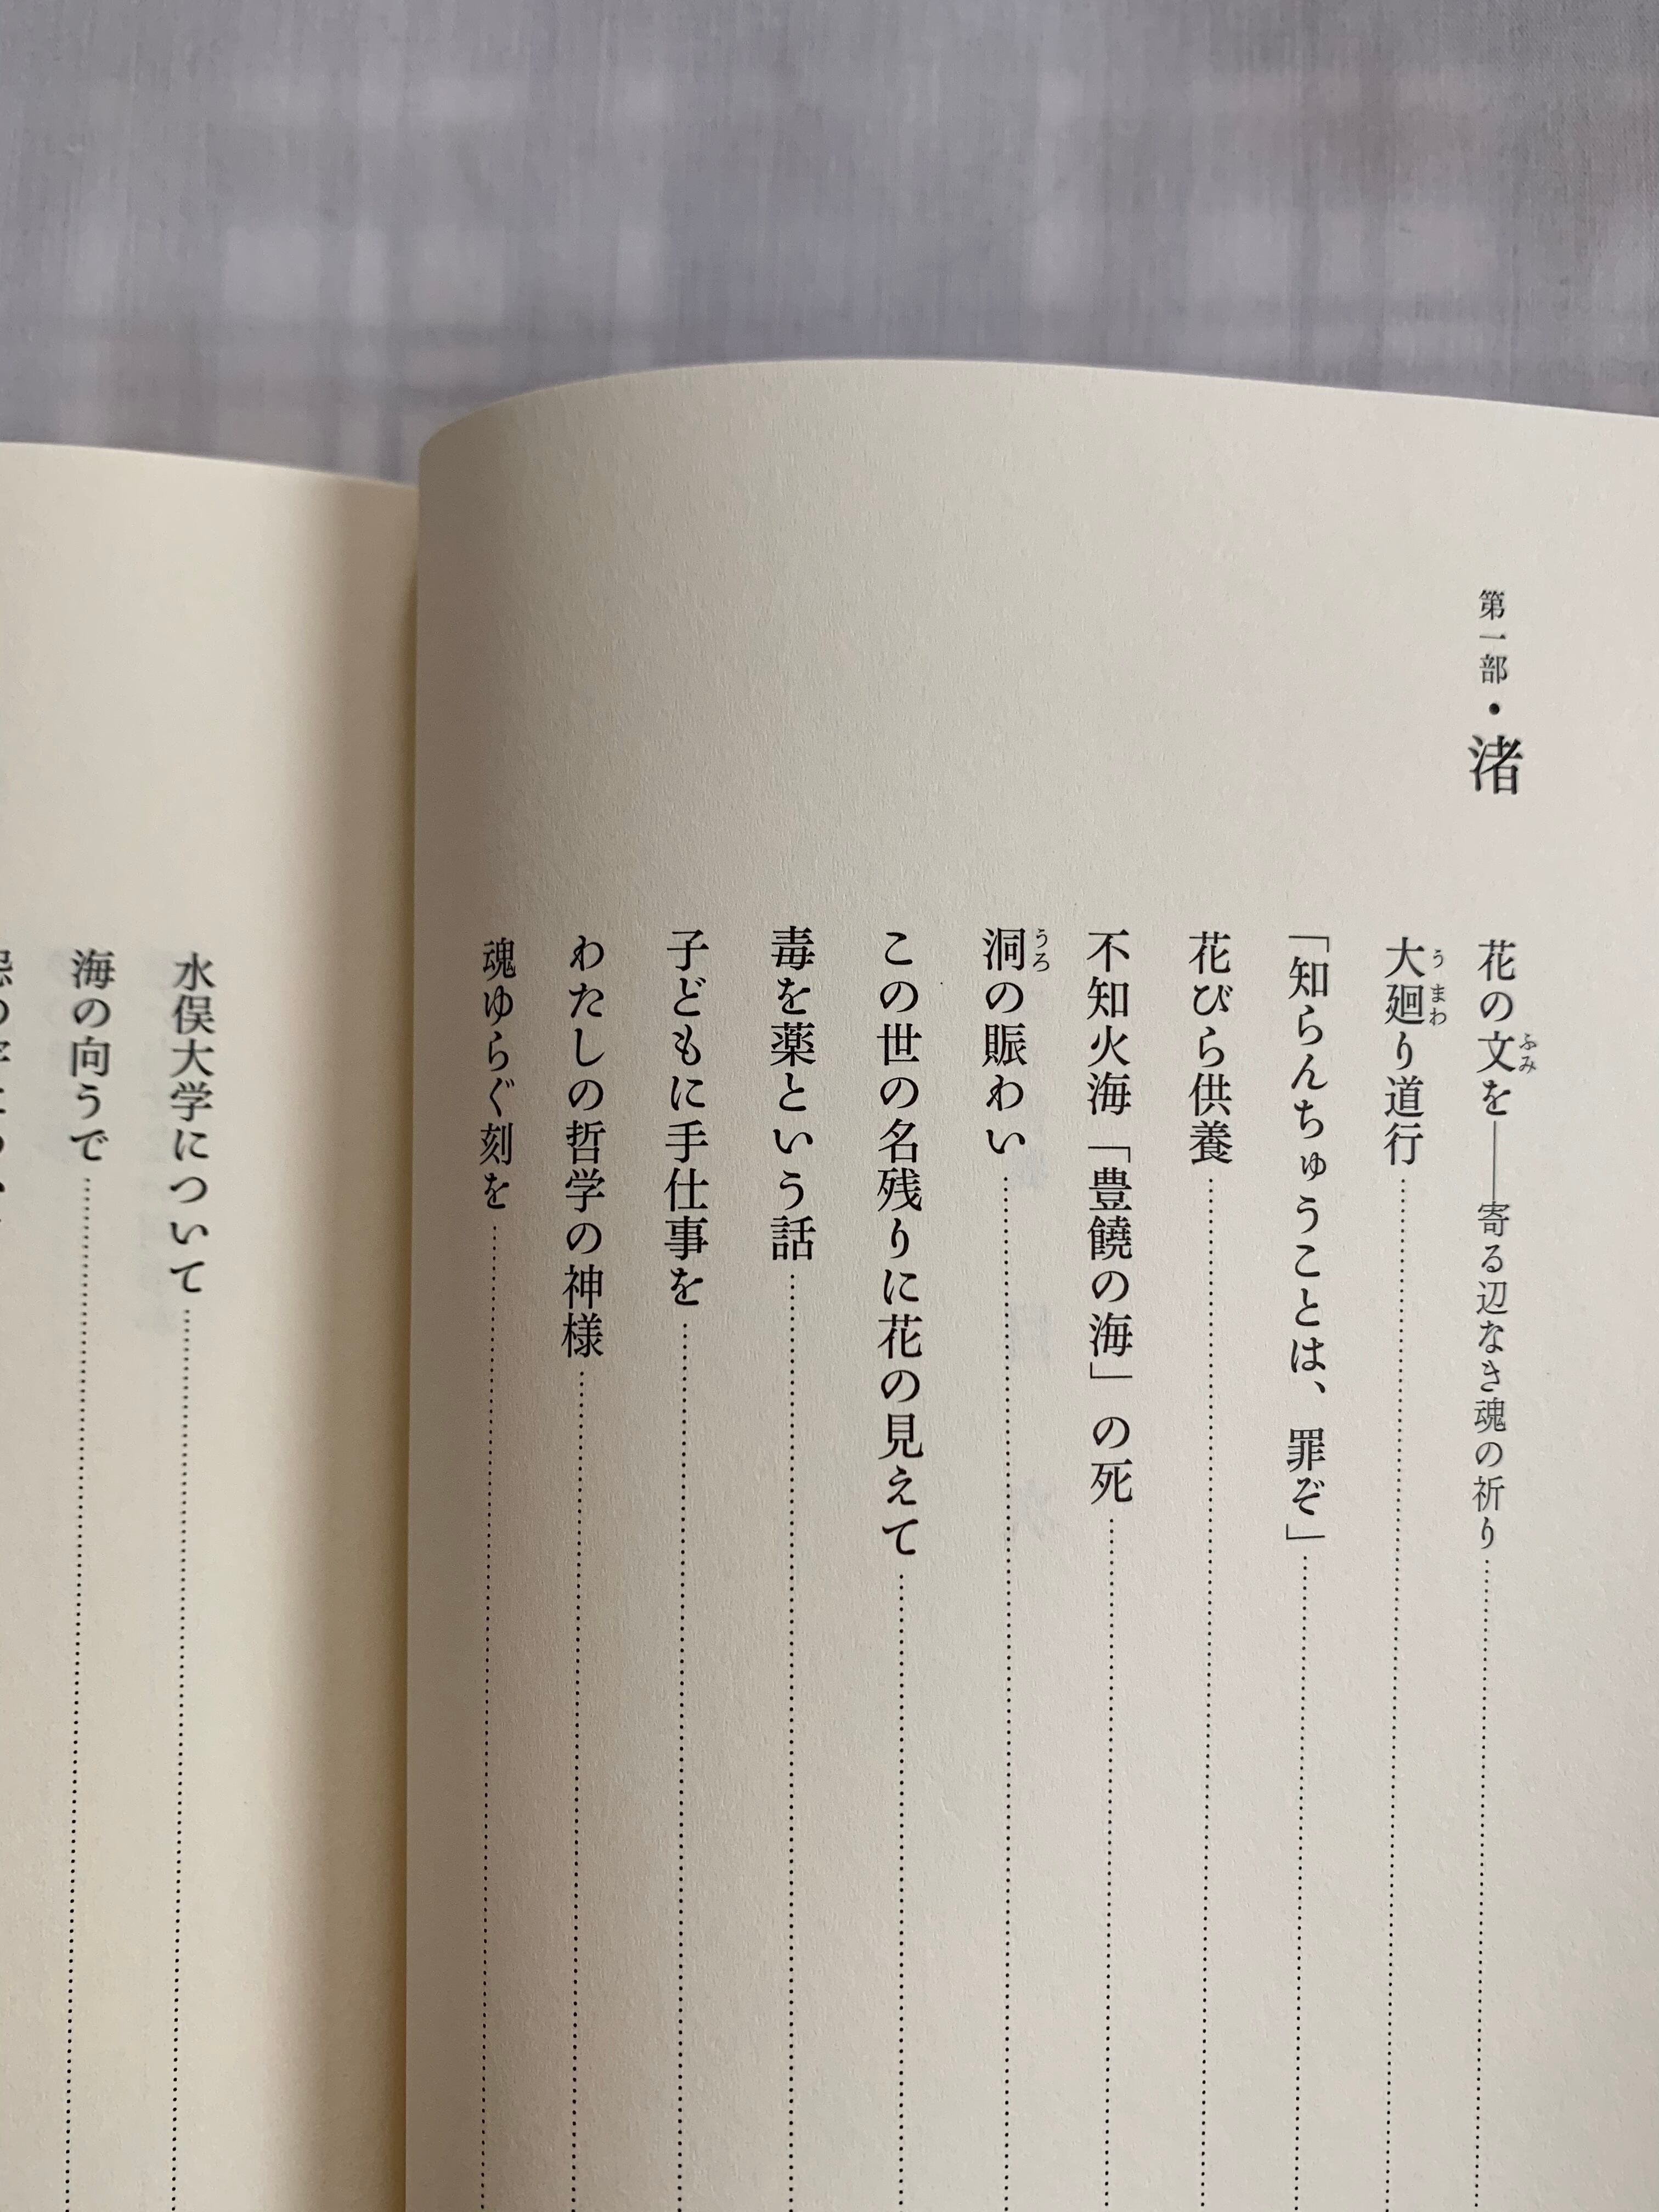 第一部・渚
花の文を――寄る辺なき魂の祈り
ふみ
大廻り道行
うまわ
「知らんちゅうことは、罪ぞ」
花びら供養
不知火海「豊饒の海」の死
洞の賑わい
うろ
この世の名残りに花の見えて
毒を薬という話
子どもに手仕事を
わたしの哲学の神様
魂ゆらぐ刻を
水俣大学について
海の向うで